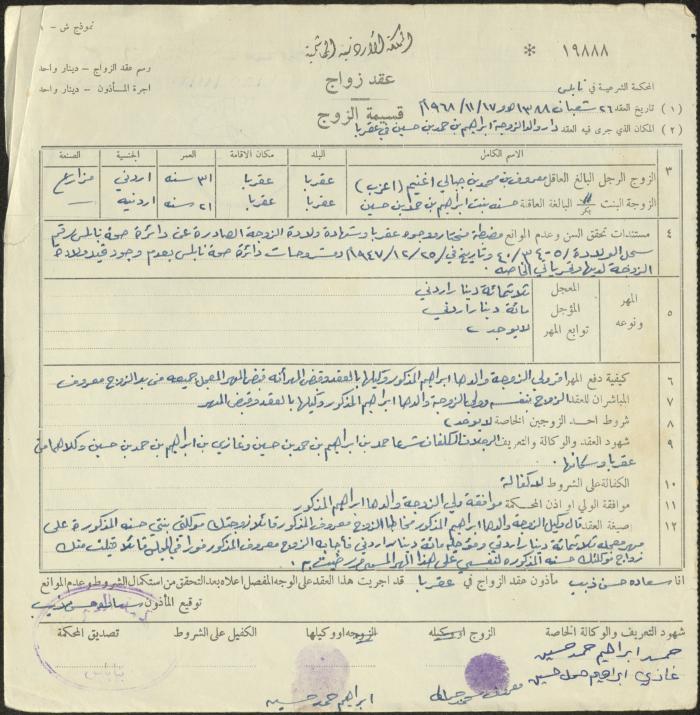 نموذج ش - ١
المملكة الأردنية الهاشمية
* ١٩٨٨٨
رسم عقد الزواج - دينار واحد
اجرة المأذون - دينار واحد
عقد زواج
قسيمة الزوج
المحكمة الشرعية في نابلس
( ١ ) تاريخ العقد ٢٦ شعبان ١٣٨٨ هـ و ١٧/ ١١/ ١٩٦٨م
( ٢ ) المكان الذي جرى فيه العقد دار والد الزوجة ابراهيم بن حمد بن حسين في عقربا
الاسم الكامل البلد مكان الاقامة العمر الجنسية الصنعة
٣ الزوج الرجل البالغ العاقل معروف بن محمد بن اغنيم ( اعزب ) عقربا عقربا ٣١ سنه اردني مزارع
الزوجة البنت بكر البالغة العاقلة حسنه بنت ابراهيم بن حمد بن حسين عقربا عقربا ٢١ سنه اردنيه
٤ مستندات تحقق السن وعدم الموانع مضبطة وجوه عقربا وشهادة ولادة الزوجة الصادرة عن دائرة صحة نابلس رقم
سجل الولادة وتاريخ في ٢٥/ ١٢/ ١٩٤٧ دائرة صحة نابلس بعدم وجود قيد ولادة
الزوجة لديها
٥ المهر ونوعه
المعجل ثلاثمائة دينار اردني
المؤجل مائة دينار اردني
توابع المهر لا يوجد
٦ كيفية دفع المهر اقر ولي الزوجة والدها ابراهيم المذكور وكيلها بالعقد وقبض المهر أنه قبض المهر المعجل جميعه من يد الزوج معروف
٧ المباشران للعقد الزوج بنفسه وولي الزوجة والدها ابراهيم المذكور وكيلها بالعقد وقبض المهر
٨ شروط احد الزوجين الخاصة لا يوجد
٩ شهود العقد والوكالة والتعريف الرجلان المكلفان شرعا حمد بن ابراهيم بن حمد بن حسين وغازي بن ابراهيم بن حمد بن حسين وكلاهما من
عقربا وسكانها .
١٠ الكفالة على الشروط لا كفالة
١١ موافقة الولي او اذن المحكمة موافقة ولي الزوجة والدها ابراهيم المذكور
١٢ صيغة العقد قال وكيل الزوجة والدها ابراهيم المذكور مخاطبا الزوج معروف المذكور قائلا زوجتك موكلتي بنتي حسنه المذكورة على
مهر معجله ثلاثمائة دينار اردني ومؤجله مائة دينار اردني فأجابه الزوج معروف المذكور فورا في المجلس قائلا قبلت منك
زواج موكلتك حسنه المذكورة لنفسي على هذا المهر المسمى ورضيت به .
انا سعاده حسن ذيب مأذون عقد الزواج في عقربا قد اجريت هذا العقد على الوجه المفصل اعلاه بعد التحقق من استكمال الشروط وعدم الموانع
توقيع المأذون سعاده حسن ذيب
شهود التعريف والوكالة الخاصة الزوج او وكيله الزوجه او وكيلها الكفيل على الشروط تصديق المحكمة
حمد ابراهيم حمد حسين
غازي ابراهيم حمد حسين
معروف محمد
ابراهيم حمد حسين
نابلس